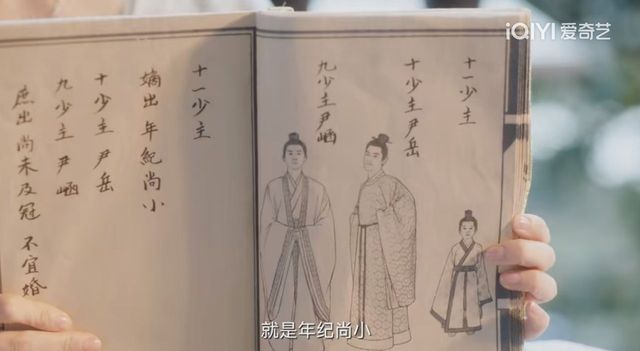 iQIYI 爱奇艺
十一少主
十少主尹岳
九少主尹岫
十一少主
嫡出 年紀尚小
十少主 尹岳
九少主 尹岫
庶出尚未及冠 不宜婚
就是年纪尚小